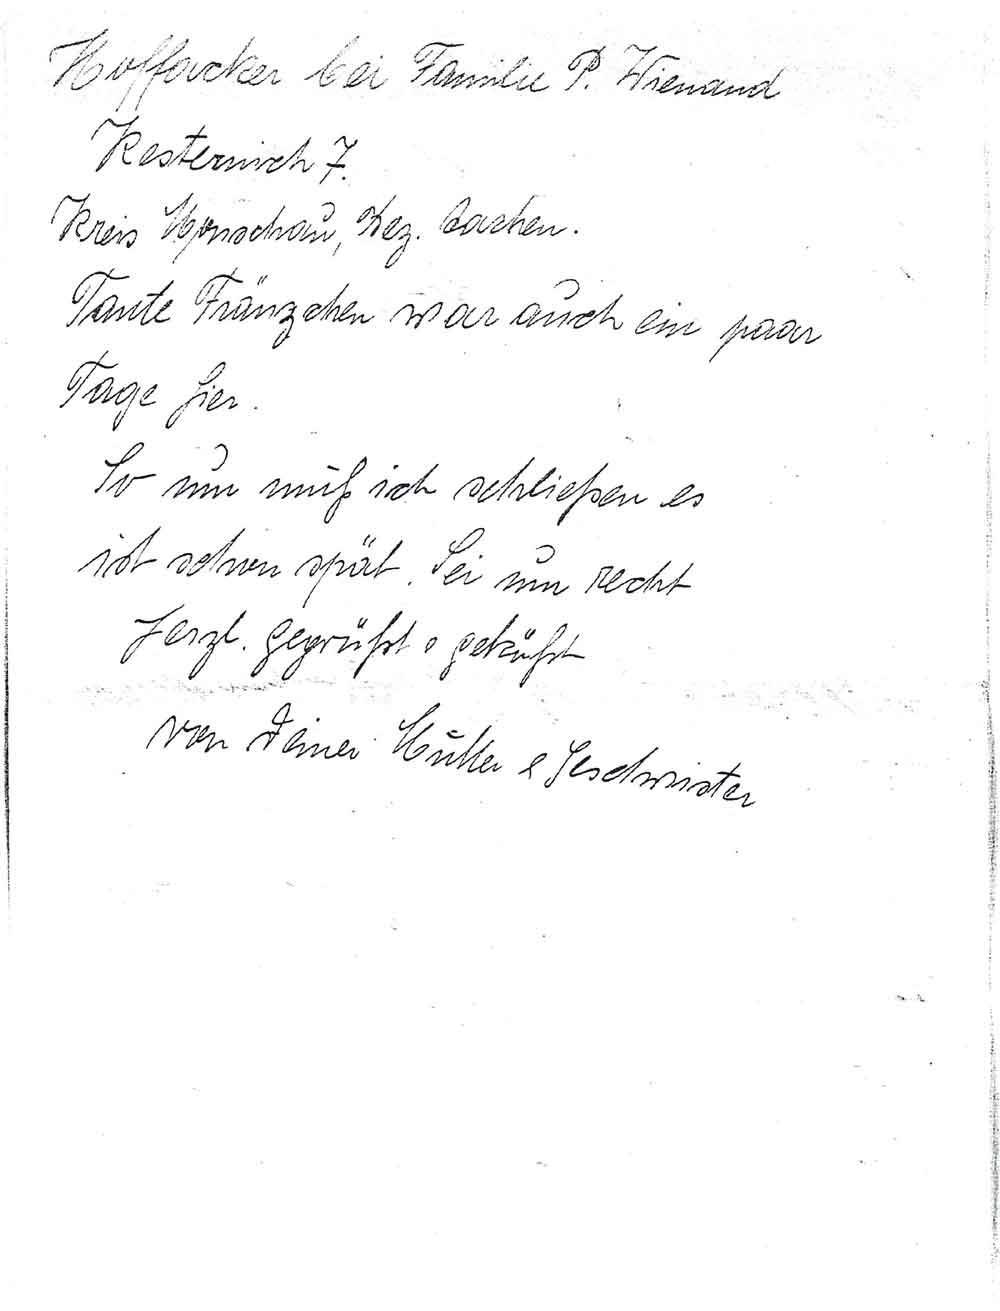 Hoffacker bei Familie P. Wienand
Kesternich 7.
Kreis Monschau, Bez. Aachen.
Tante Fränzchen war auch ein paar
Tage hier.
So nun muß ich schließen es
ist schon spät. Sei nun recht
herzl. gegrüßt u geküßt
von Deiner Mutter u Geschwister